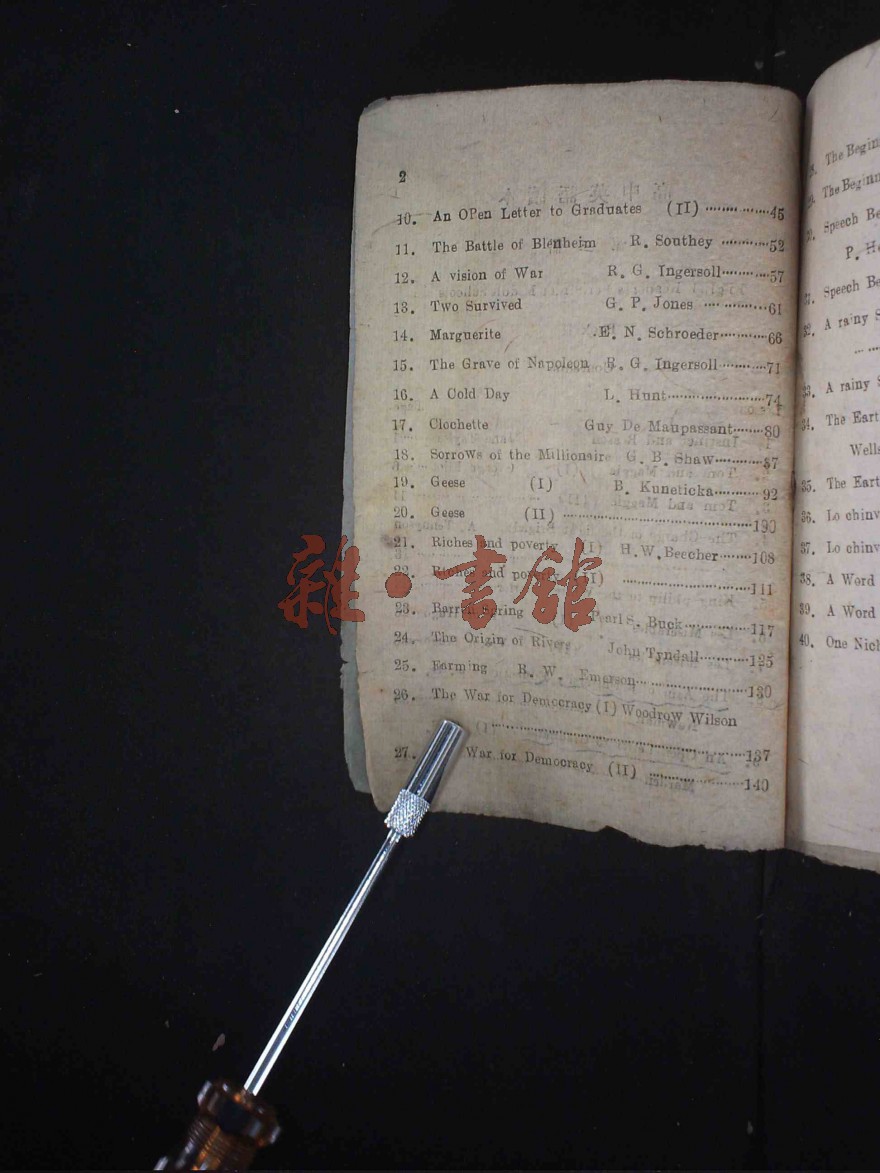 2
10. An OPen Letter to Graduates (II) ················45
11. The Battle of Blenheim R. Southey ············52
12. A vision of War R. G. Ingersoll············57
13. Two Survived G. P. Jones ················61
14. Marguerite E. N. Schroeder············66
15. The Grave of Napoleon R. G. Ingersoll············71
16. A Cold Day L. Hunt························74
17. Clochette Guy De Maupassant········80
18. SorroWs of the Millionaire G. B. Shaw············87
19. Geese (I) B. Kuneticka············92
20. Geese (II) ················································190
21. Riches and poverty (I) H.W.Beecher········108
22. Riches and poverty (II) ································111
23. Barren Spring Pearl S. Buck················117
24. The Origin of Rivers John Tyndall············125
25. Farming R. W. Emerson····························130
26. The War for Demccracy (I) WoodroW Wilson
································································137
27. War for Democracy (II) ························140
The Begin
The Beginn
Speech Be
P. H
Speech Be
A rainy S
33. A rainy
34. The Eart
Wells
35. The Eart
36. Lo chinv
37. Lo chinv
38. A Word
39. A Word
40. One Nich
雜·書館